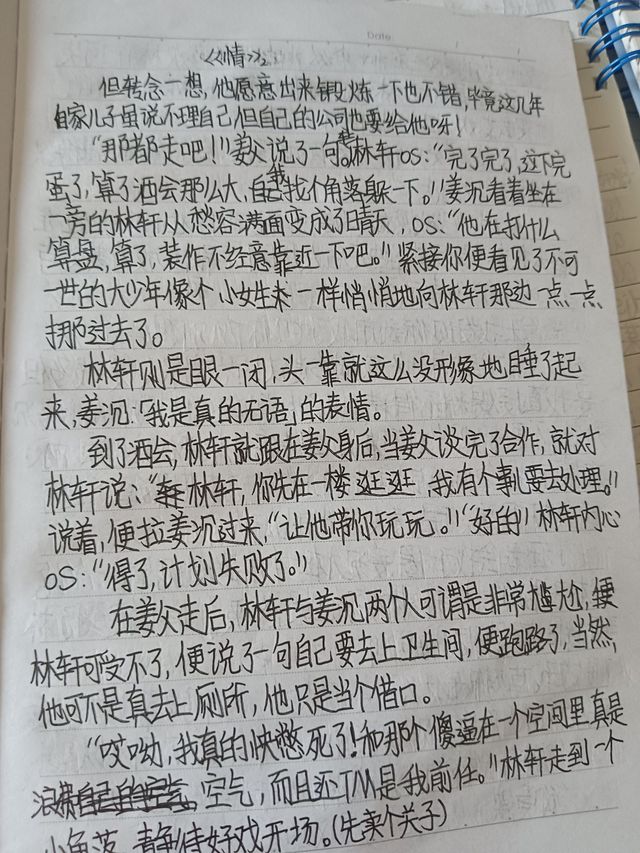 Date:
《情》2:
但转念一想，他愿意出来锻炼一下也不错，毕竟这几年
自家儿子虽说不理自己但自己的公司也要给他呀！
“那都走吧！”姜父说了一句。林轩OS：“完了完了，这下完
蛋了，算了酒会那么大，我找个角落躲一下。”姜沉看着坐在
一旁的林轩从愁容满面变成了晴天，OS：“他在打什么
算盘，算了，装作不经意靠近一下吧。”紧接你便看见了不可
一世的大少年像个小女生来一样悄悄地向林轩那边一点一点
挪过去了。
林轩则是眼一闭，头一靠就这么没形象地睡了起
来，姜沉：「我是真的无语」的表情。
到了酒会，林轩就跟在姜父身后，当姜父谈完了合作，就对
林轩说：“林轩，你先在一楼逛逛，我有个事儿要去处理。”
说着，便拉姜沉过来，“让他带你玩玩。”“好的”林轩内心
OS：“得了，计划失败了。”
在姜父走后，林轩与姜沉两个人可谓是非常尴尬，
林轩可受不了，便说了一句自己要去上卫生间，便跑路了，当然，
他可不是真去上厕所，他只是当个借口。
“哎呦，我真的快憋死了！和那个傻逼在一个空间里真是
空气，而且还TM是我前任。”林轩走到一个
小角落，静待好戏开场。(先卖个关子)